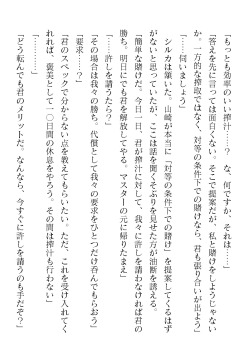 「もっとも効率のいい搾汁⋯⋯？　な、何ですか、それは⋯⋯」
「答えを先に言っては面白くない。そこで提案だが、私と賭けをしようじゃない
か。一方的な搾取ではなく、対等の条件下での賭けなら、君も張り合いが出よう」
「⋯⋯伺いましょう」
　シルカは頷いた。山崎が本当に「対等の条件下での賭け」を提案してくるはず
がないと思っていたが、ここは話を聞くそぶりを見せた方が油断を誘える。
「簡単な賭けだ。今日一日、君が搾汁に対して、我々に許しを請わなければ君の
勝ち。明日にでも君を解放してやる。マスターの元に帰りたまえ」
「⋯⋯許しを請うたら？」
「その場合は我々の勝ち。代償として我々の要求をひとつだけ呑んでもらおう」
「要求⋯⋯？」
「君のスペックで分からない点を教えてもらいたい。ただ、これを受け入れてく
れれば、褒美として一〇日間の休息をやろう。その間は搾汁も行わない」
「⋯⋯」
「どう転んでも君のメリットだ。なんなら、今すぐに許しを請うのも手だぞ？」